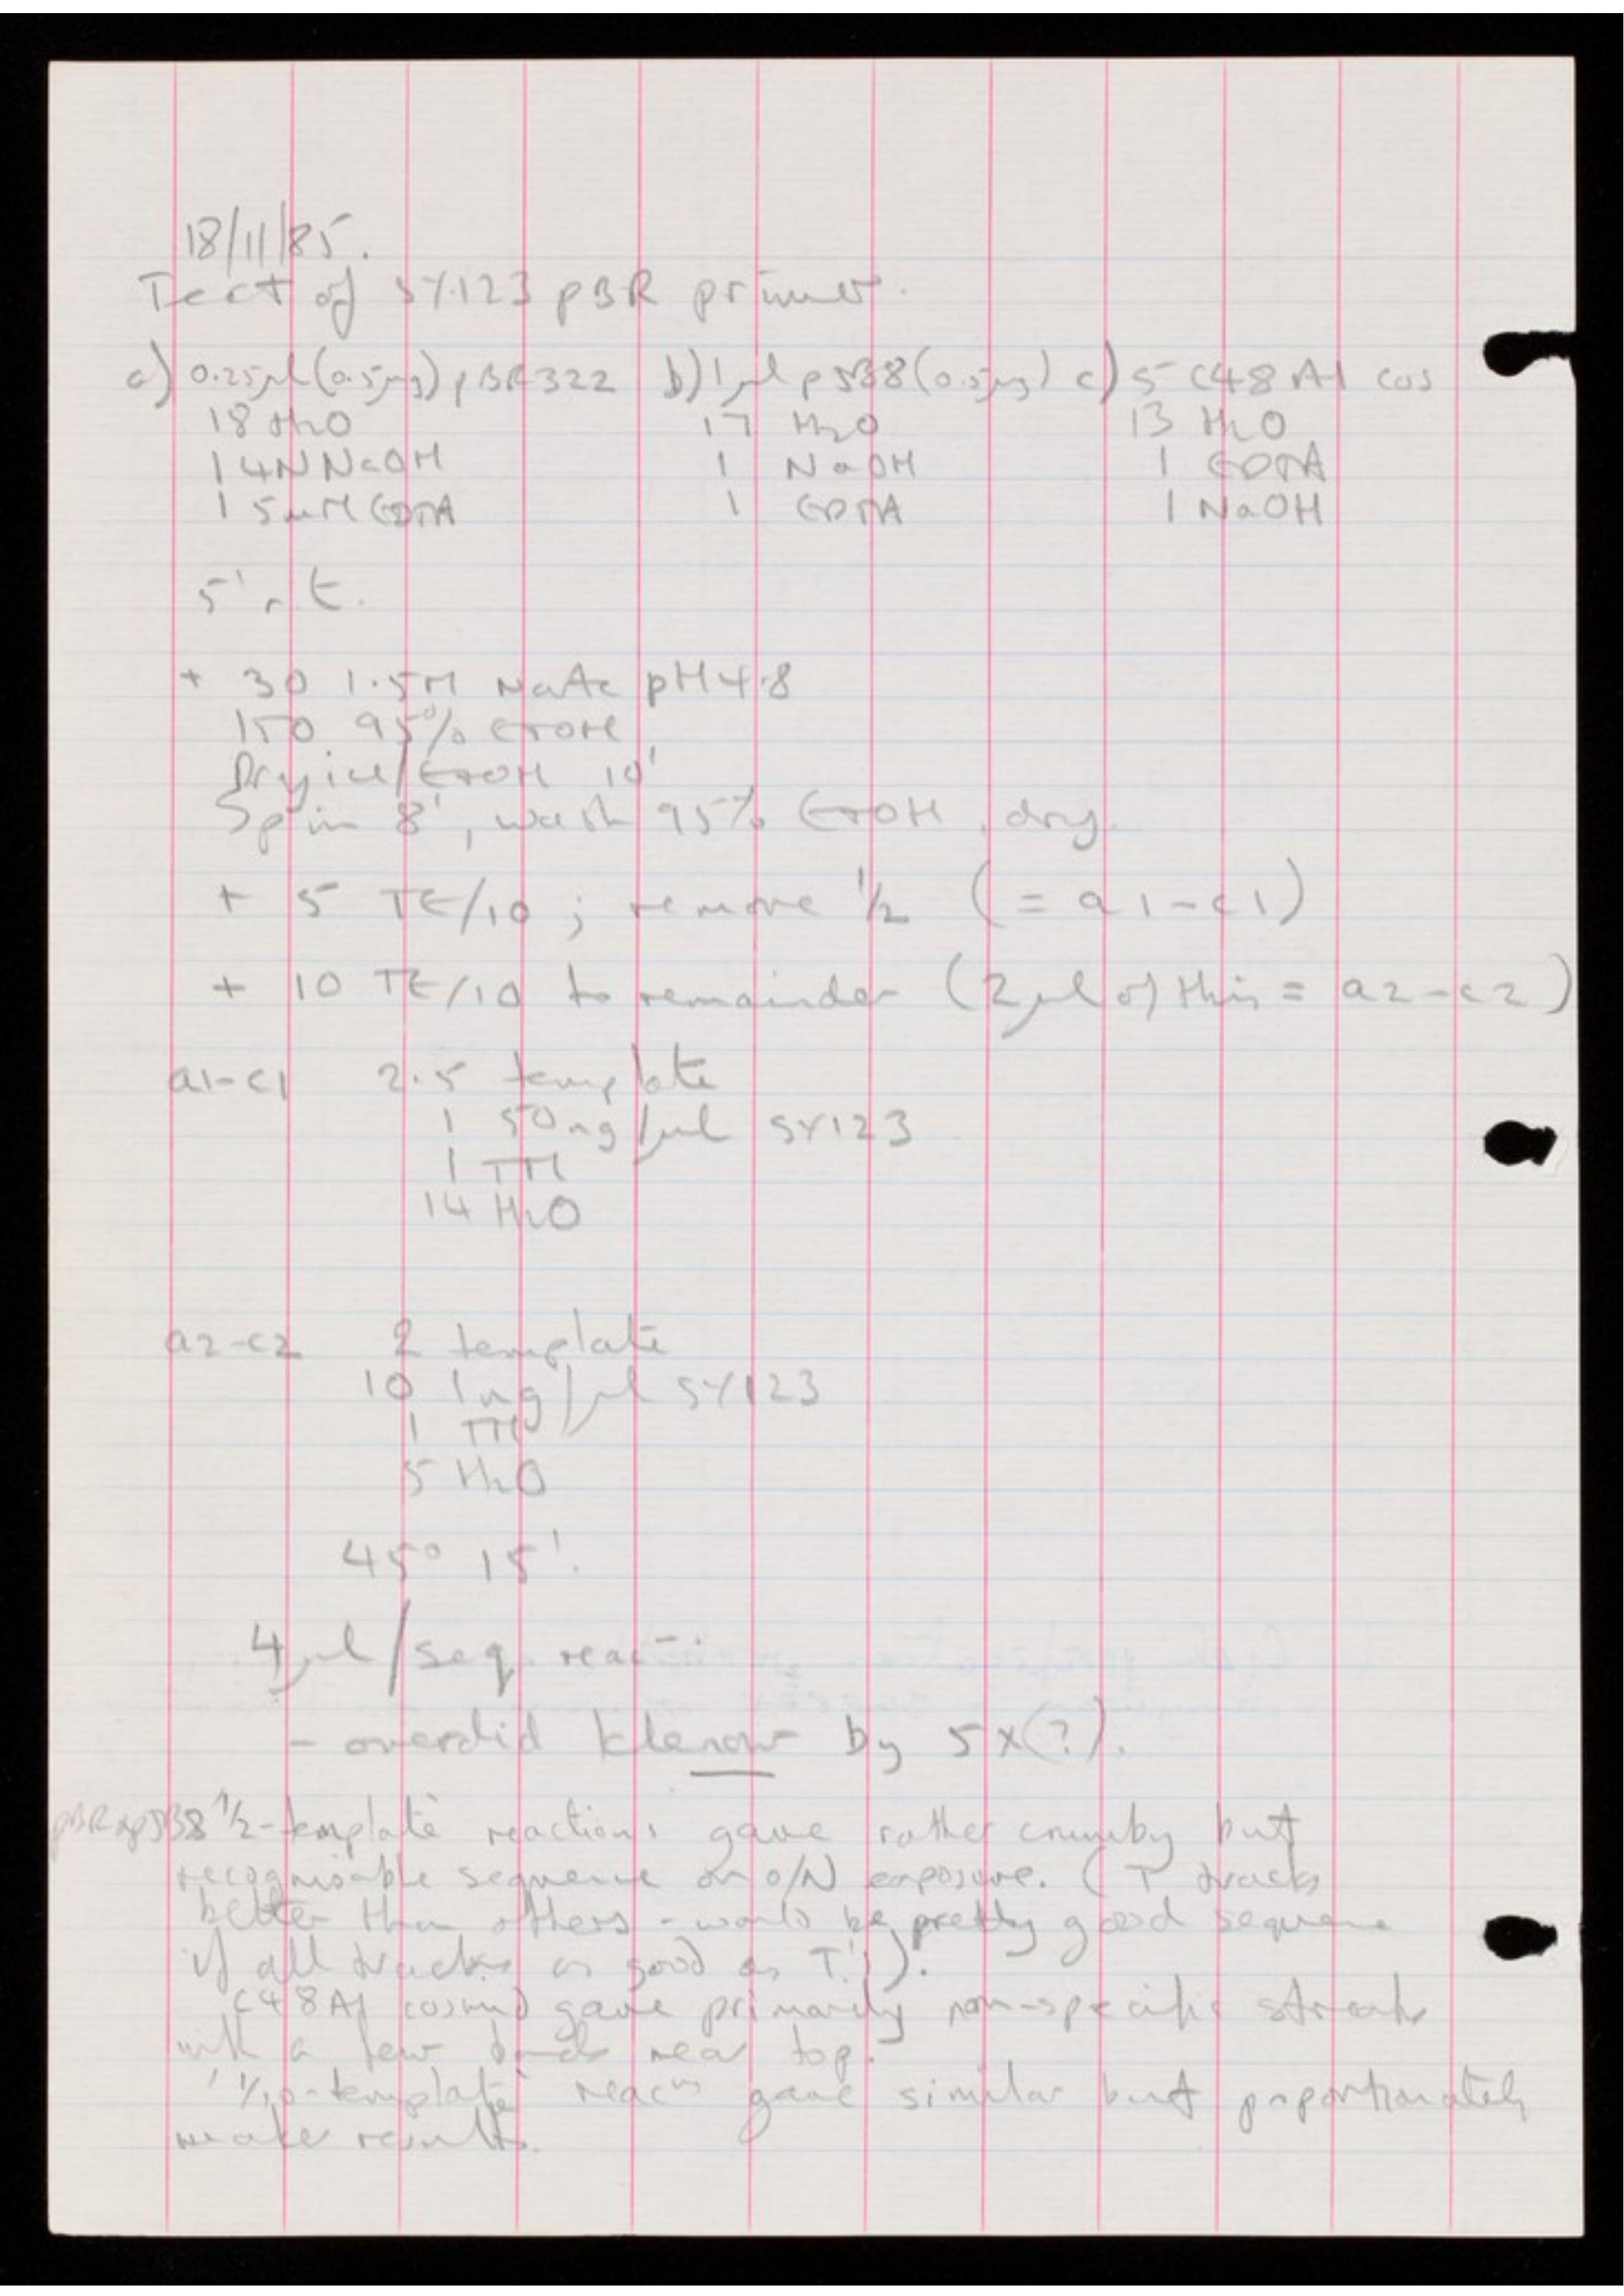 18/11/85.
Test of SY123 pBR primer.
a) 0.25µl (0.5µg) pBR322 b) 1µl pJB8 (0.5µg) c) 5 C48A1 cos
18 H2O 17 H2O 13 H2O
1 4N NaOH 1 NaOH 1 EDTA
1 5mM EDTA 1 EDTA 1 NaOH
5' r.t.
+ 30 1.5M NaAc pH4.8
150 95% EtOH
Dry ice/EtOH 10'
Spin 8', wash 95% EtOH, dry.
+ 5 TE/10; remove 1/2 (= a1-c1)
+ 10 TE/10 to remainder (2µl of this = a2-c2)
a1-c1 2.5 template
1 50ng/µl SY123
1 TM
14 H2O
a2-c2 2 template
10 1ng/µl SY123
1 TM
5 H2O
45° 15'.
4µl/seq. reac
- overdid klenow by 5x(?).
pBR pJB8 '1/2-template' reactions gave rather crumby but
recognisable sequence on o/N exposure. (T tracks
better than others - would be pretty good sequence
if all tracks as good as T!).
C48A1 cosmid gave primarily non-specific streak
with a few bands near top.
'1/10-template' reacns gave similar but proportionately
weaker results.